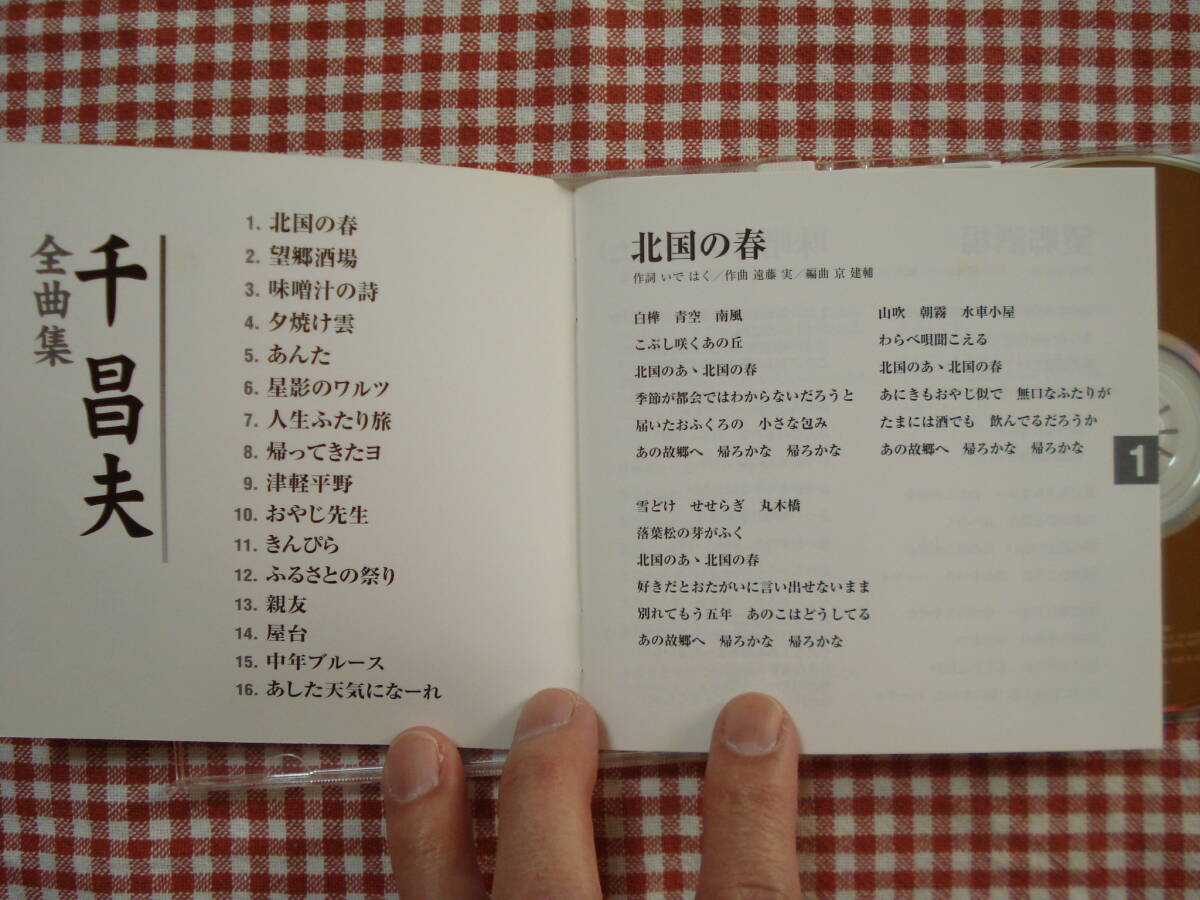 千 昌夫
全曲集
1. 北国の春
2. 望郷酒場
3. 味噌汁の詩
4. 夕焼け雲
5. あんた
6. 星影のワルツ
7. 人生ふたり旅
8. 帰ってきたヨ
9. 津軽平野
10. おやじ先生
11. きんぴら
12. ふるさとの祭り
13. 親友
14. 屋台
15. 中年ブルース
16. あした天気になーれ
北国の春
作詞 いで はく／作曲 遠藤 実／編曲 京 建輔
白樺 青空 南風
こぶし咲くあの丘
北国のあゝ北国の春
季節が都会ではわからないだろうと
届いたおふくろの 小さな包み
あの故郷へ 帰ろかな 帰ろかな
雪どけ せせらぎ 丸木橋
落葉松の芽がふく
北国のあゝ北国の春
好きだとおたがいに言い出せないまま
別れてもう五年 あのこはどうしてる
あの故郷へ 帰ろかな 帰ろかな
山吹 朝霧 水車小屋
わらべ唄聞こえる
北国のあゝ北国の春
あにきもおやじ似で 無口なふたりが
たまには酒でも 飲んでるだろうか
あの故郷へ 帰ろかな 帰ろかな
1